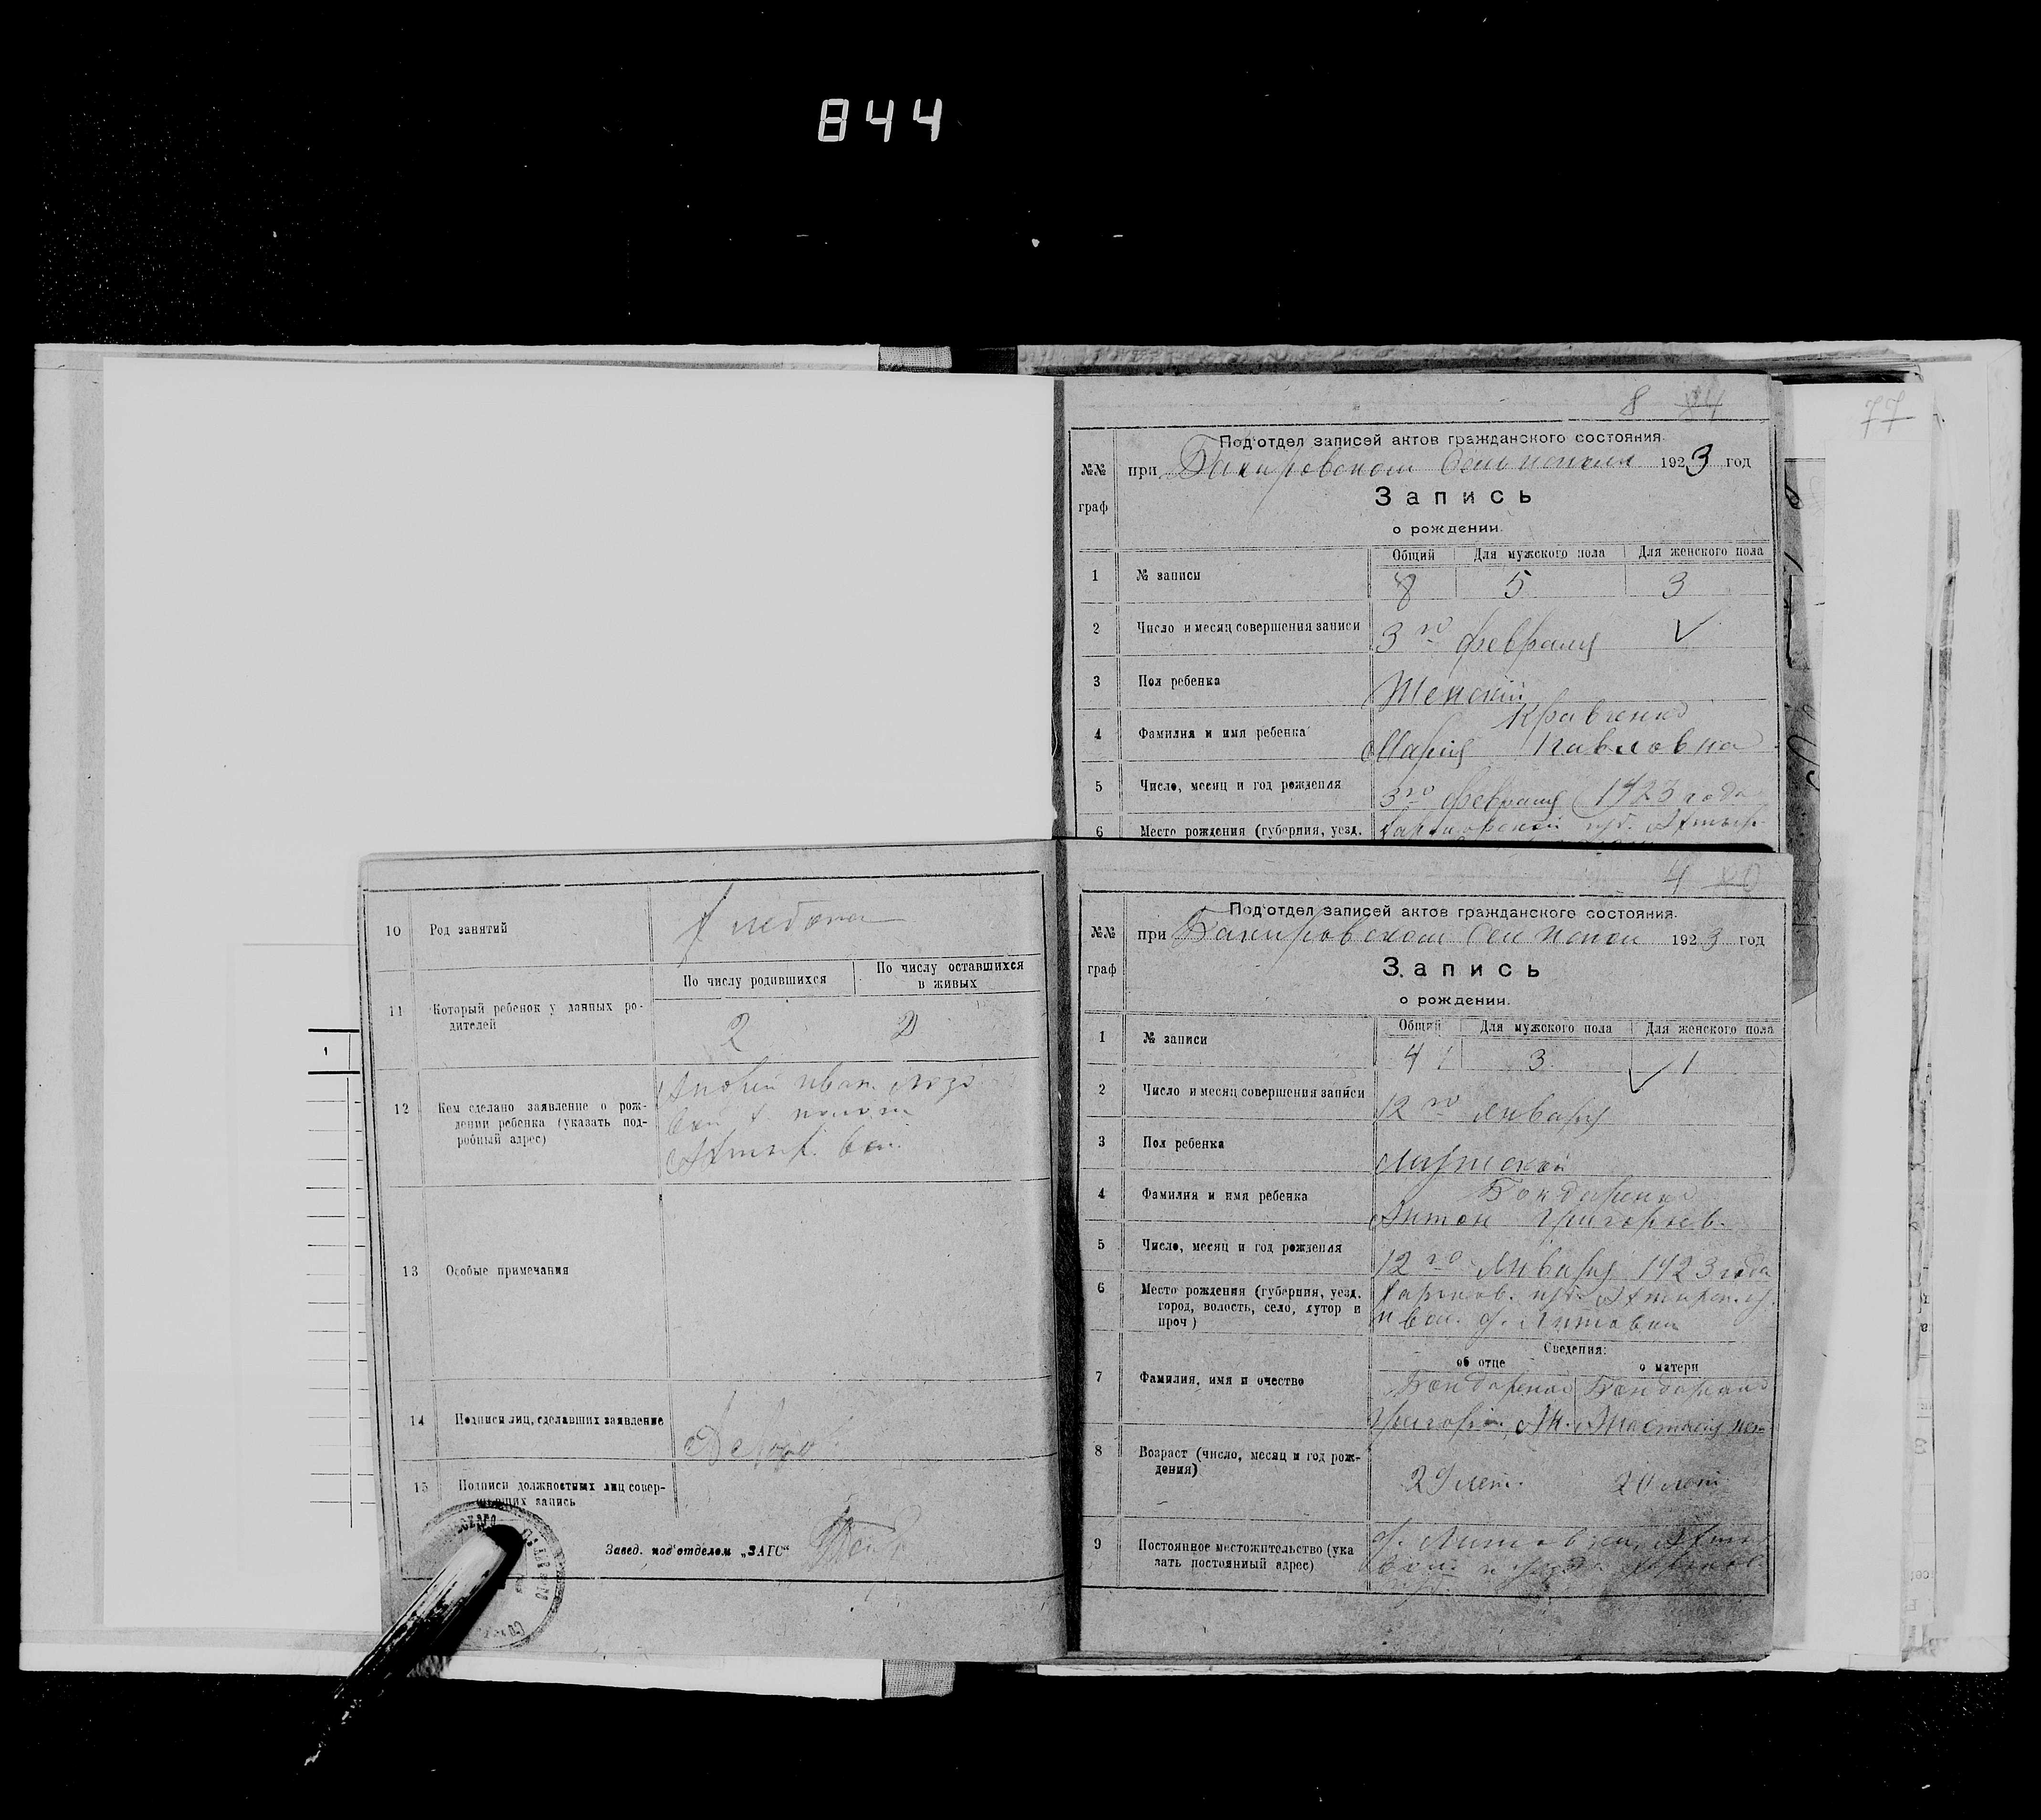 844
77
8 84
Под'отдел записей актов гражданского состояния.
№№ граф
при Бакировском 1923 год
Запись
о рождении.
Общий Для мужского пола Для женского пола
1 № записи 8 5 3
2 Число и месяц совершения записи 3го февраля
3 Пол ребенка Женский
4 Фамилия и имя ребенка Кравченко
Мария Павловна
5 Число, месяц и год рождения 3го февраля 1923 года
6 Место рождения (губерния, уезд. Харьковской губ. Ахтыр.
10 Род занятий Хлебопа
По числу родившихся По числу оставшихся
в живых
11 Который ребенок у данных ро-
дителей 2 2
12 Кем сделано заявление о рож-
дении ребенка (указать под-
робный адрес)
Ахтыр. вол.
13 Особые примечания
14 Подписи лиц, сделавших заявление
15 Подписи должностных лиц совер-
шивших запись
Завед. под'отделом „ЗАГС“
4 80
Под'отдел записей актов гражданского состояния.
№№ граф
при Бакировском 1923 год
Запись
о рождении.
Общий Для мужского пола Для женского пола
1 № записи 4 3 1
2 Число и месяц совершения записи 12го января
3 Пол ребенка Мужской
4 Фамилия и имя ребенка Бондаренко
Антон Григорьев.
5 Число, месяц и год рождения 12го Января 1923 года
6 Место рождения (губерния, уезд. город, волость, село, хутор и проч) Харьков. губ. Ахтырск. у.
и вол. х. Литовки
Сведения:
об отце о матери
7 Фамилия, имя и очество Бондаренко Бондаренко
Григорий Анастасия
8 Возраст (число, месяц и год рож-
дения) 29 лет. 20 лет
9 Постоянное местожительство (ука
зать постоянный адрес) х. Литовки, Ахтыр
вол. и уезда Харьков
губ.